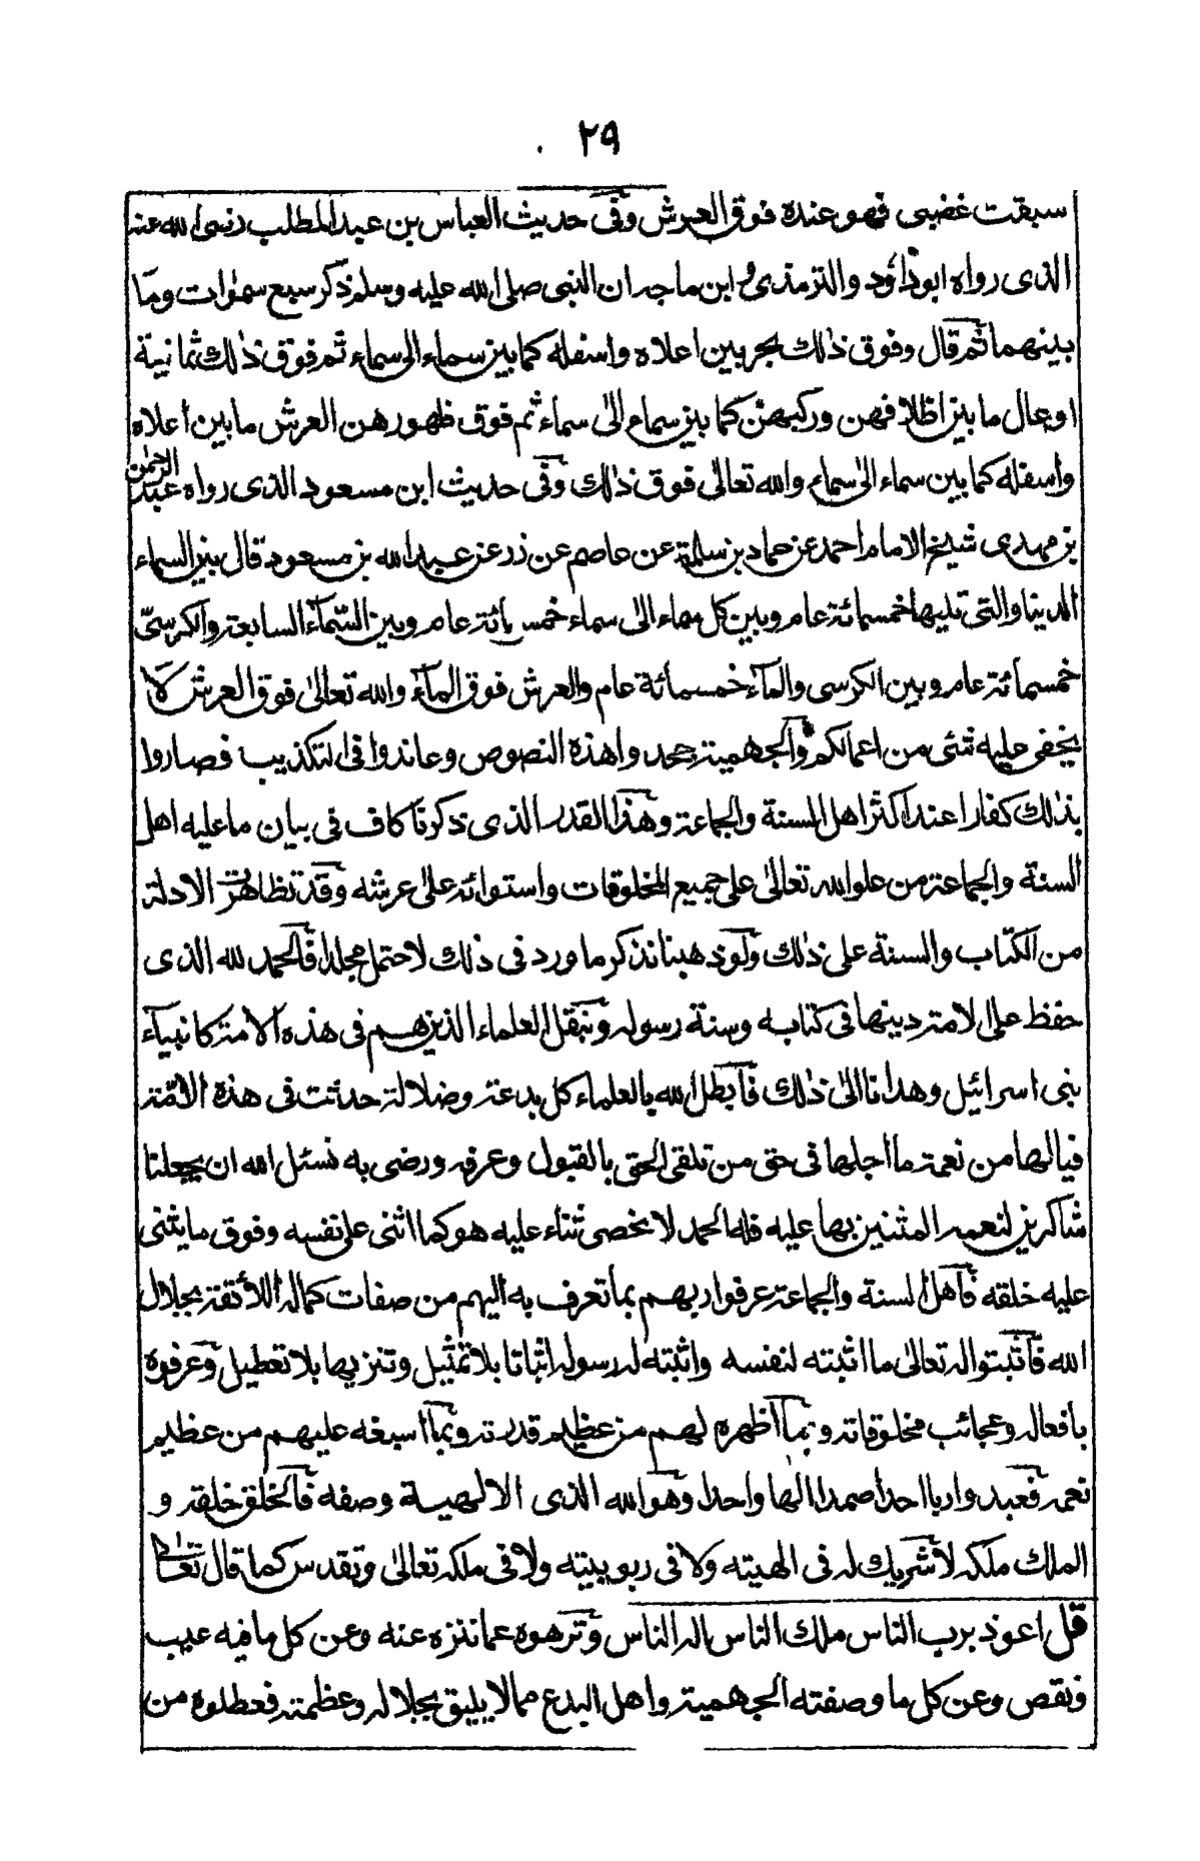 ٢٩
سبقت غضبى فهو عنده فوق العرش وفى حديث العباس بن عبد المطلب رضى الله عنه
الذى رواه ابو داؤد والترمذى و ابن ماجه ان النبى صلى الله عليه وسلم ذكر سبع سمٰوات وما
بينهما ثم قال وفوق ذٰلك بحر بين اعلاه واسفله كما بين سماء الى سماء ثم فوق ذٰلك ثمانية
اوعال ما بين اظلافهن وركبهن كما بين سماء الىٰ سماء ثم فوق ظهورهن العرش ما بين اعلاه
واسفله كما بين سماء الىٰ سماء والله تعالىٰ فوق ذٰلك وفى حديث ابن مسعود الذى رواه عبد الرحمٰن
بن مهدى شيخ الامام احمد عن حماد بن سلمة عن عاصم عن زر عن عبد الله بن مسعود قال بين السماء
الدنيا والتى تليها خمسمائة عام وبين كل سماء الى سماء خمسمائة عام وبين السّماء السابعة والكرسىّ
خمسمائة عام وبين الكرسى والماء خمسمائة عام والعرش فوق الماء والله تعالىٰ فوق العرش لا
يخفى عليه شئى من اعمالكم والجهمية جحدوا هذه النصوص وعاندوا فى التكذيب فصاروا
بذٰلك كفارا عند اكثر اهل السنة والجماعة وهذا القدر الذى ذكرنا كاف فى بيان ما عليه اهل
السنة والجماعة من علو الله تعالىٰ على جميع المخلوقات واستوائه علىٰ عرشه وقد تظاهرت الادلة
من الكتاب والسنة على ذٰلك ولو ذهبنا نذكر ما ورد فى ذلك لاحتمل مجلدا فالحمد لله الذى
حفظ على الامة دينها فى كتابه وسنة رسوله وبنقل العلماء الذين هم فى هذه الامة كانبياء
بنى اسرائيل وهدانا الىٰ ذٰلك فابطل الله بالعلماء كل بدعة وضلالة حدثت فى هذه الامّة
فيالها من نعمة ما اجلها فى حق من تلقى الحق بالقبول وعرفه ورضى به نسئل الله ان يجعلنا
شاكرين لنعمه المثنين بها عليه فله الحمد لا نحصى ثناء عليه هو كما اثنى على نفسه وفوق ما يثنى
عليه خلقه فاهل السنة والجماعة عرفوا ربهم بما تعرف به اليهم من صفات كماله اللائقة بجلال
الله فاثبتوا له تعالىٰ ما اثبته لنفسه واثبته له رسوله اثباتا بلا تمثيل وتنزيها بلا تعطيل وعرفوه
بافعاله وعجائب مخلوقاته وبما اظهره لهم من عظيم قدرته وبما اسبغه عليهم من عظيم
نعمه فعبدوا ربا احدا صمدا الها واحدا وهو الله الذى الالهية وصفه فالخلق خلقه و
الملك ملكه لا شريك له فى الهيته ولا فى ربوبيته ولا فى ملكه تعالىٰ وتقدس كما قال تعالىٰ
قل اعوذ برب الناس ملك الناس اله الناس ونزهوه عما نزه عنه وعن كل ما فيه عيب
ونقص وعن كل ما وصفته الجهمية واهل البدع مما لا يليق بجلاله وعظمته فعطلوه من